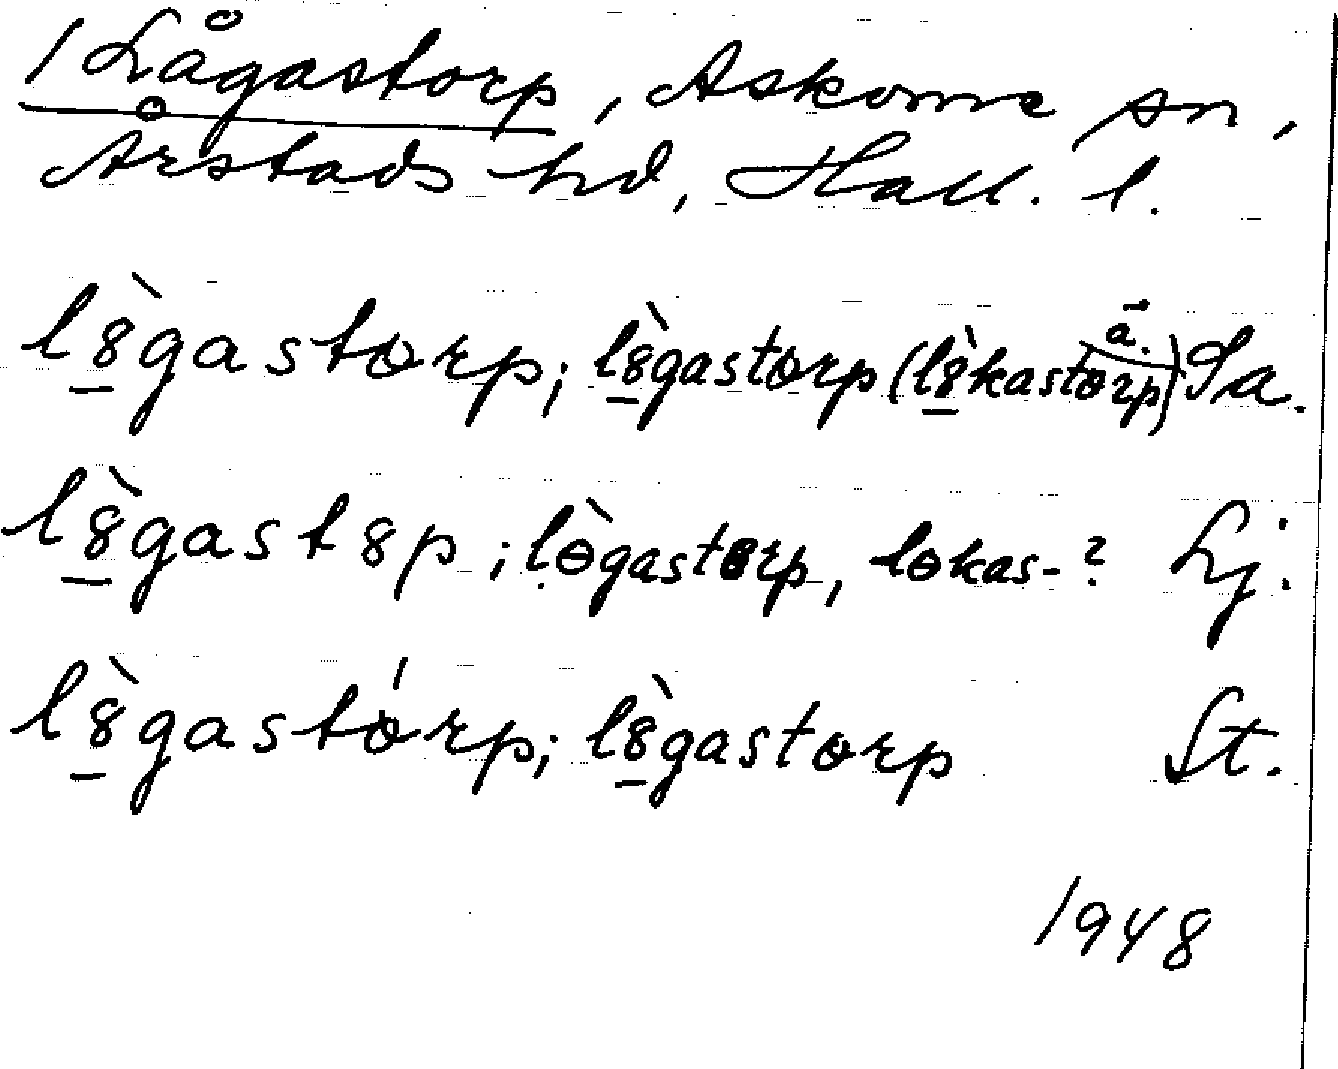 / Lågastorp, Askome sn,
Årstads hd, Hall. l.
l8̠̀gastɵrp; l8̠̀gastɵrp (l8̠̀kastɵrp) a. Sa.
l8̠̀gast8p; lɵ̀gastɵrp, lɵkas-? Lj.
l8̠̀gastɵ́rp; l8̠̀gastɵrp St.
1948